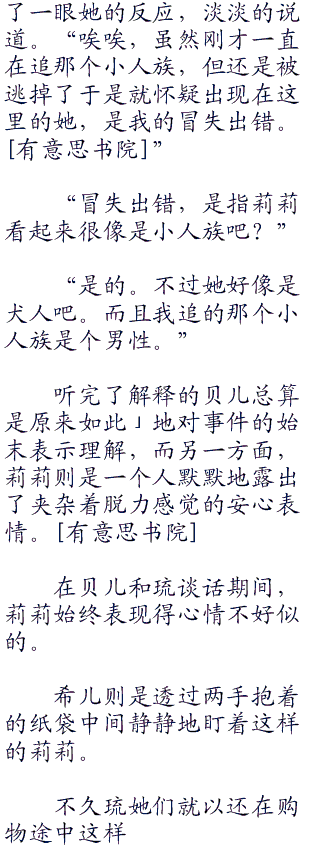 了一眼她的反应，淡淡的说
道。“唉唉，虽然刚才一直
在追那个小人族，但还是被
逃掉了于是就怀疑出现在这
里的她，是我的冒失出错。
[有意思书院]”
“冒失出错，是指莉莉
看起来很像是小人族吧？”
“是的。不过她好像是
犬人吧。而且我追的那个小
人族是个男性。”
听完了解释的贝儿总算
是原来如此」地对事件的始
末表示理解，而另一方面，
莉莉则是一个人默默地露出
了夹杂着脱力感觉的安心表
情。[有意思书院]
在贝儿和琉谈话期间，
莉莉始终表现得心情不好似
的。
希儿则是透过两手抱着
的纸袋中间静静地盯着这样
的莉莉。
不久琉她们就以还在购
物途中这样